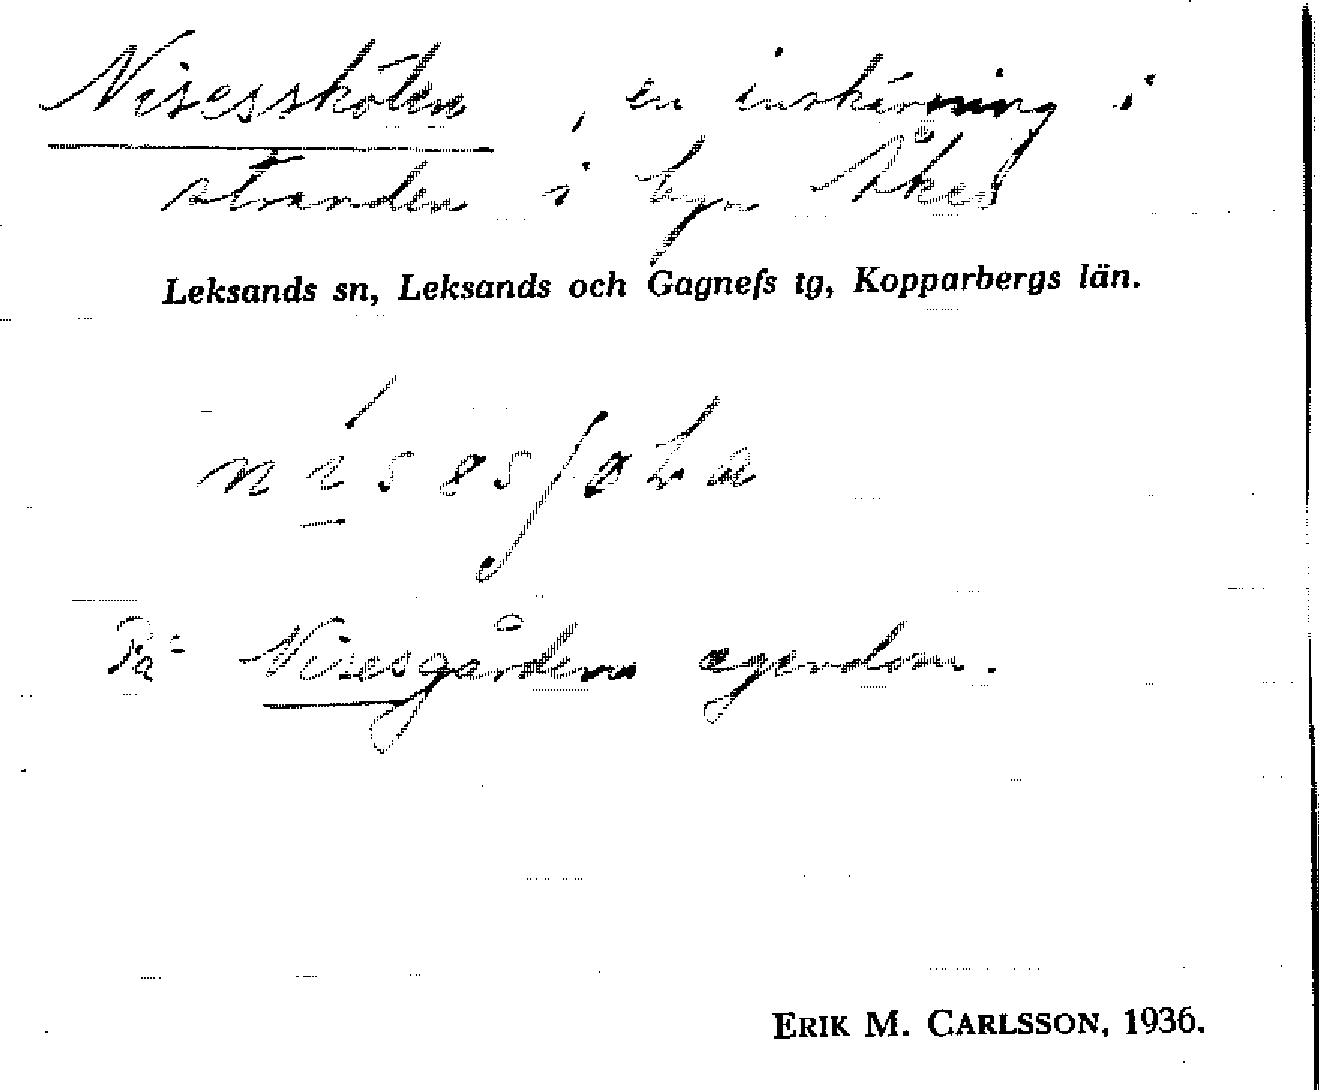 Nisesskölen, en inskärning i
stranden i byn Åkerö
Leksands sn, Leksands och Gagnefs tg, Kopparbergs län.
På Nisesgårdens egendom.
ERIK M. CARLSSON, 1936.